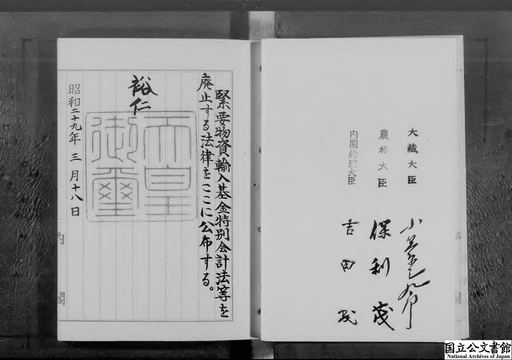 大蔵大臣
農林大臣 保利茂
内閣総理大臣 吉田茂
緊要物資輸入基金特別会計法等を
廃止する法律をここに公布する。
裕仁
天皇
御璽
昭和二十九年三月十八日
内閣
国立公文書館
National Archives of Japan